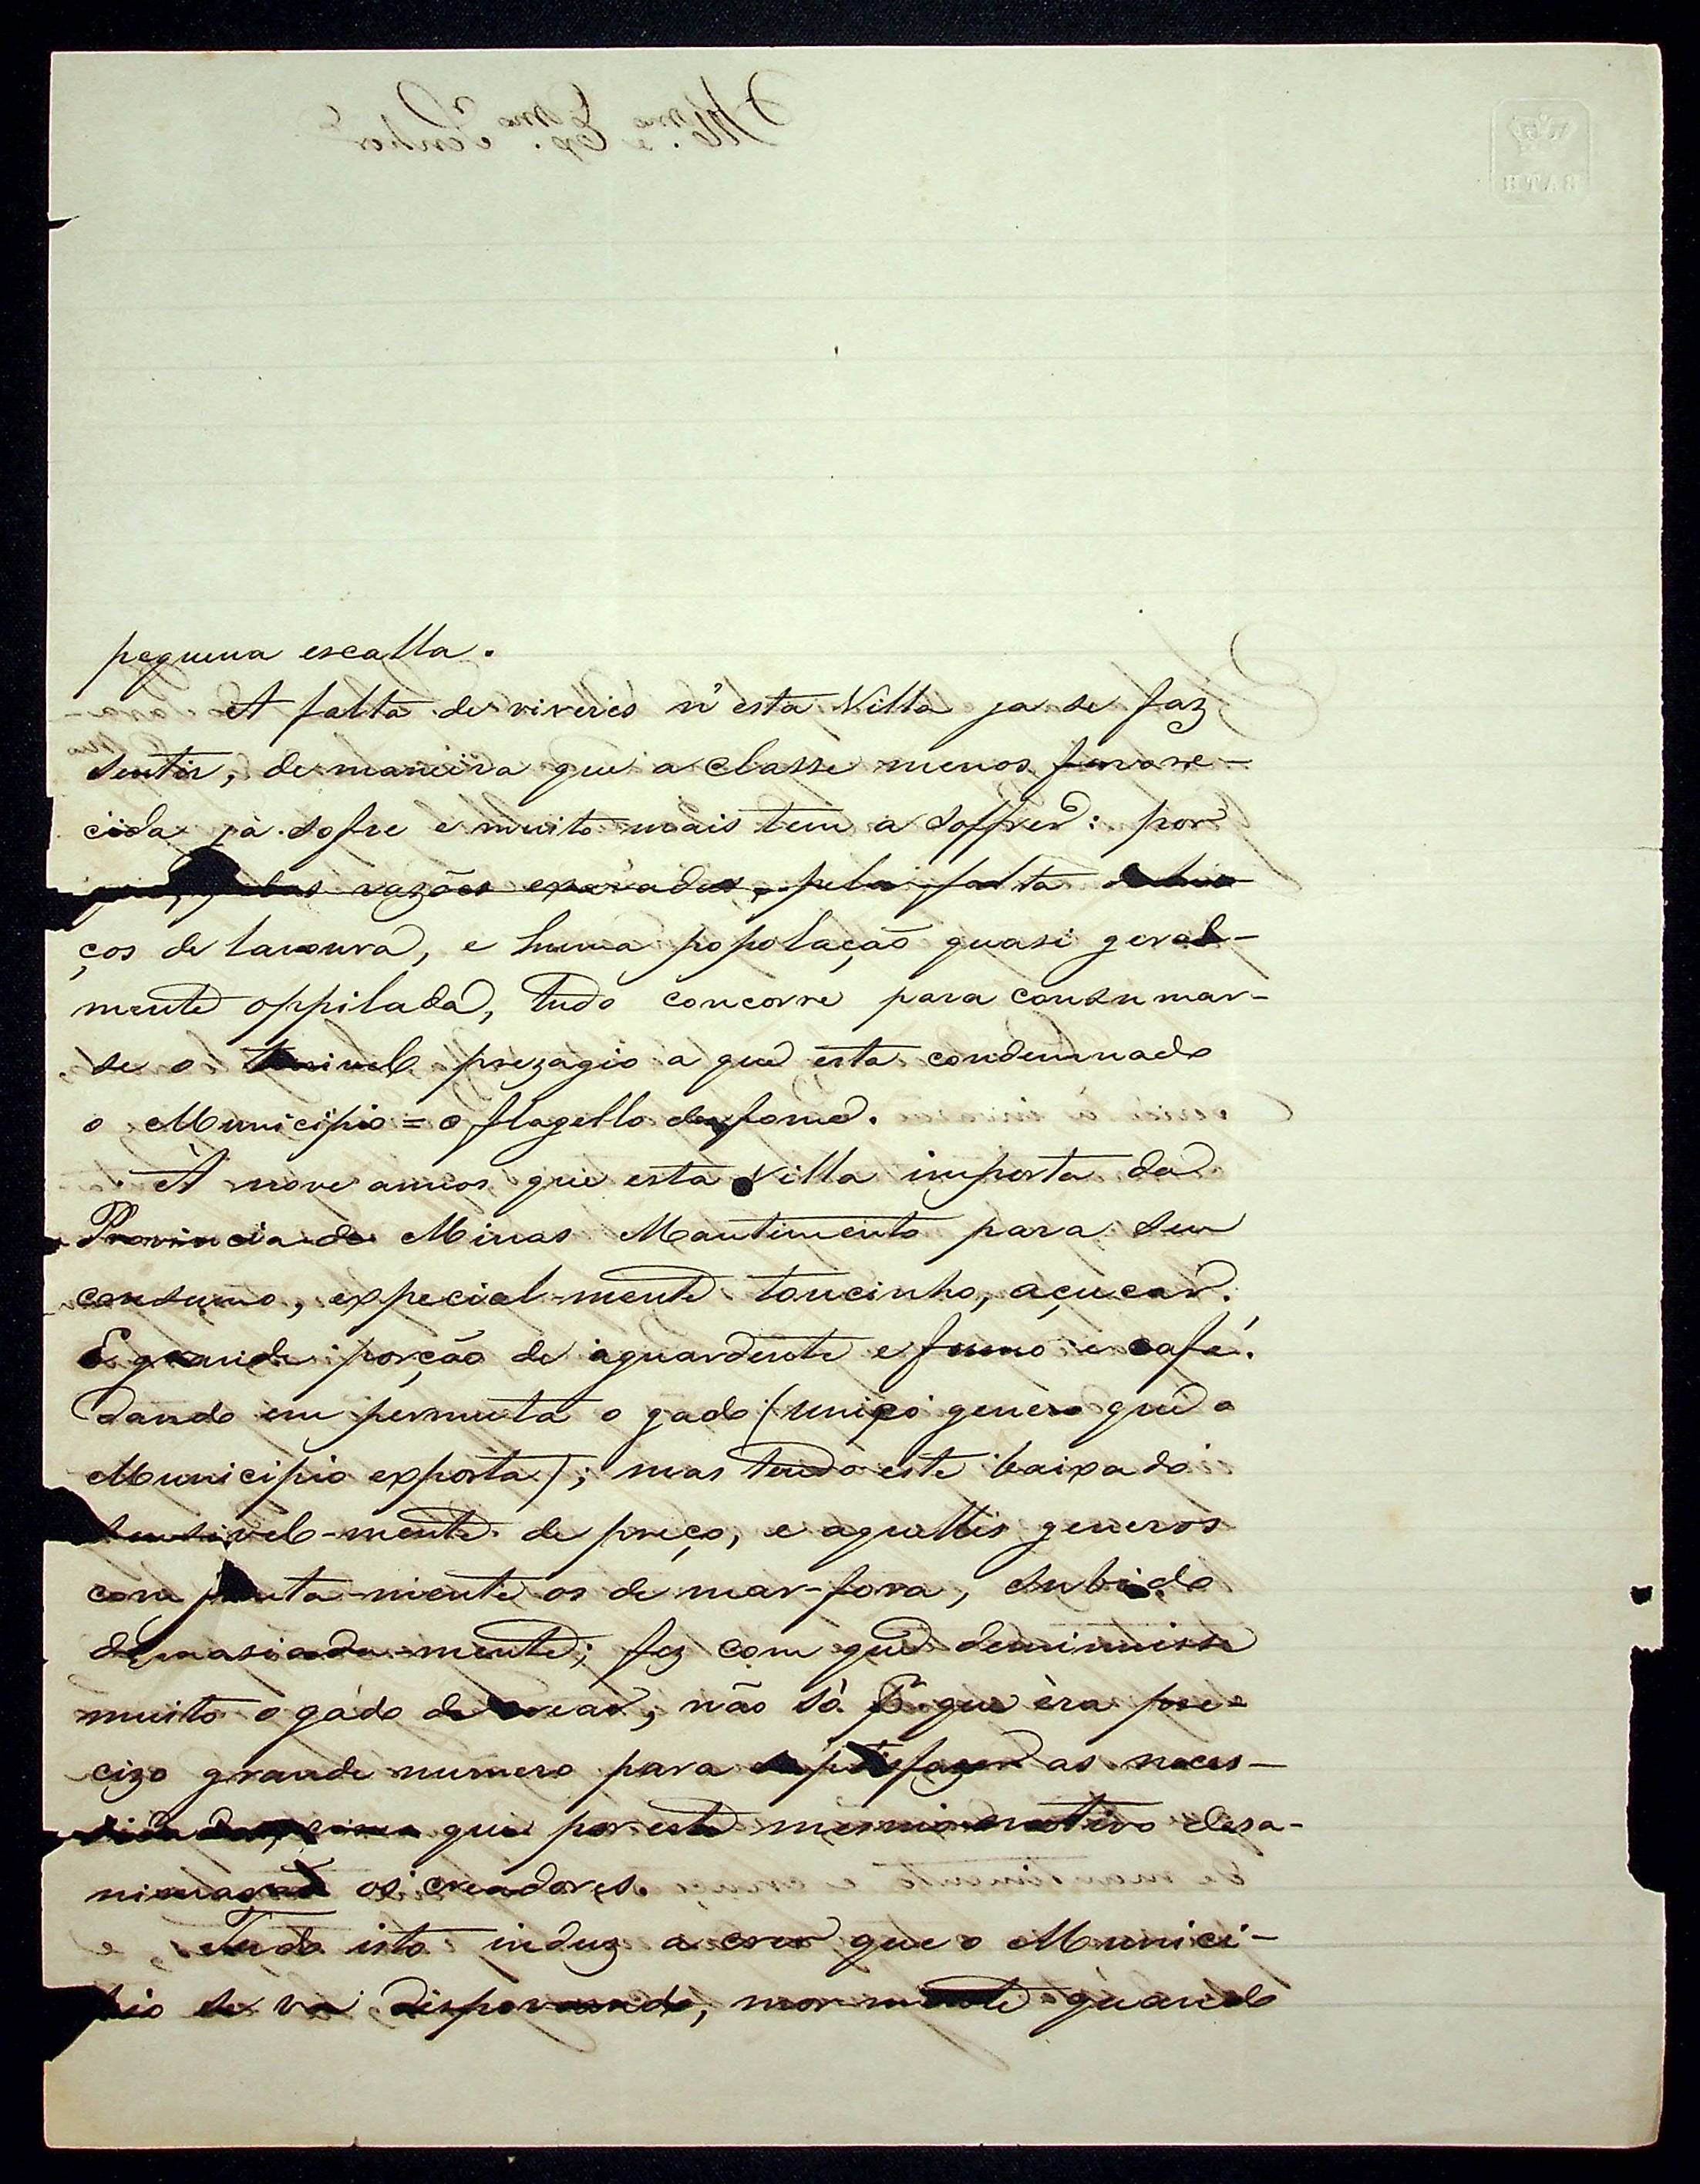 pequena escalla.
A falta de viveres n'esta Villa ja se faz
sentir, de maneira que a classe menos favore-
cida jà sofre e muito mais tem a soffrer: por
que, pelas razões expradas, pela falta de bra-
ços de lavoura, e huma popolação quasi geral-
mente oppilada, tudo concorre para consumar-
se o terrivel prezagio a que esta condemnado
o Municipio = o flagello da fome.
À nove annos que esta Villa importa da
Provincia de Minas Mantimento para seu
consumo, especial-mente toucinho, açucar.
E grande porção de aguardente e fumo e café.
dando em permuta o gado (unico genero que o
Municipio exporta); mas tendo este baixado
sensivel-mente de preço, e aquelles generos
com junta-mente os de mar-fora, subido
demasiada-mente; fez com que deminuisse
muito o gado de crear, não só Pr que èra pre-
cizo grande numero para satisfazer as neces-
sidades, como que por este mesmo motivo desa-
nimarão os creadores.
Tudo isto induz a crer que o Munici-
pio se vai despovoando, mormente quando
Illmo. e Exmo. Senhor
BATH